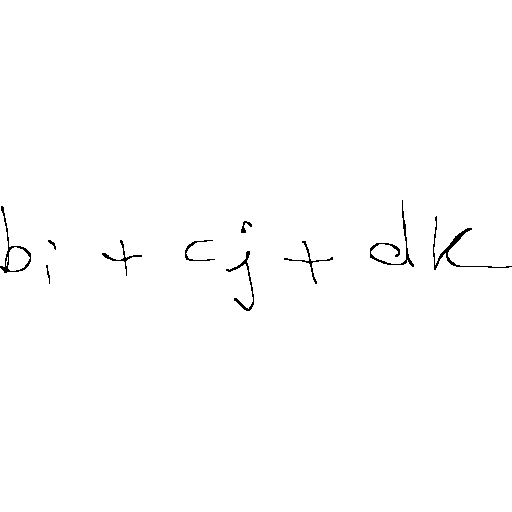 bi + cj + dk